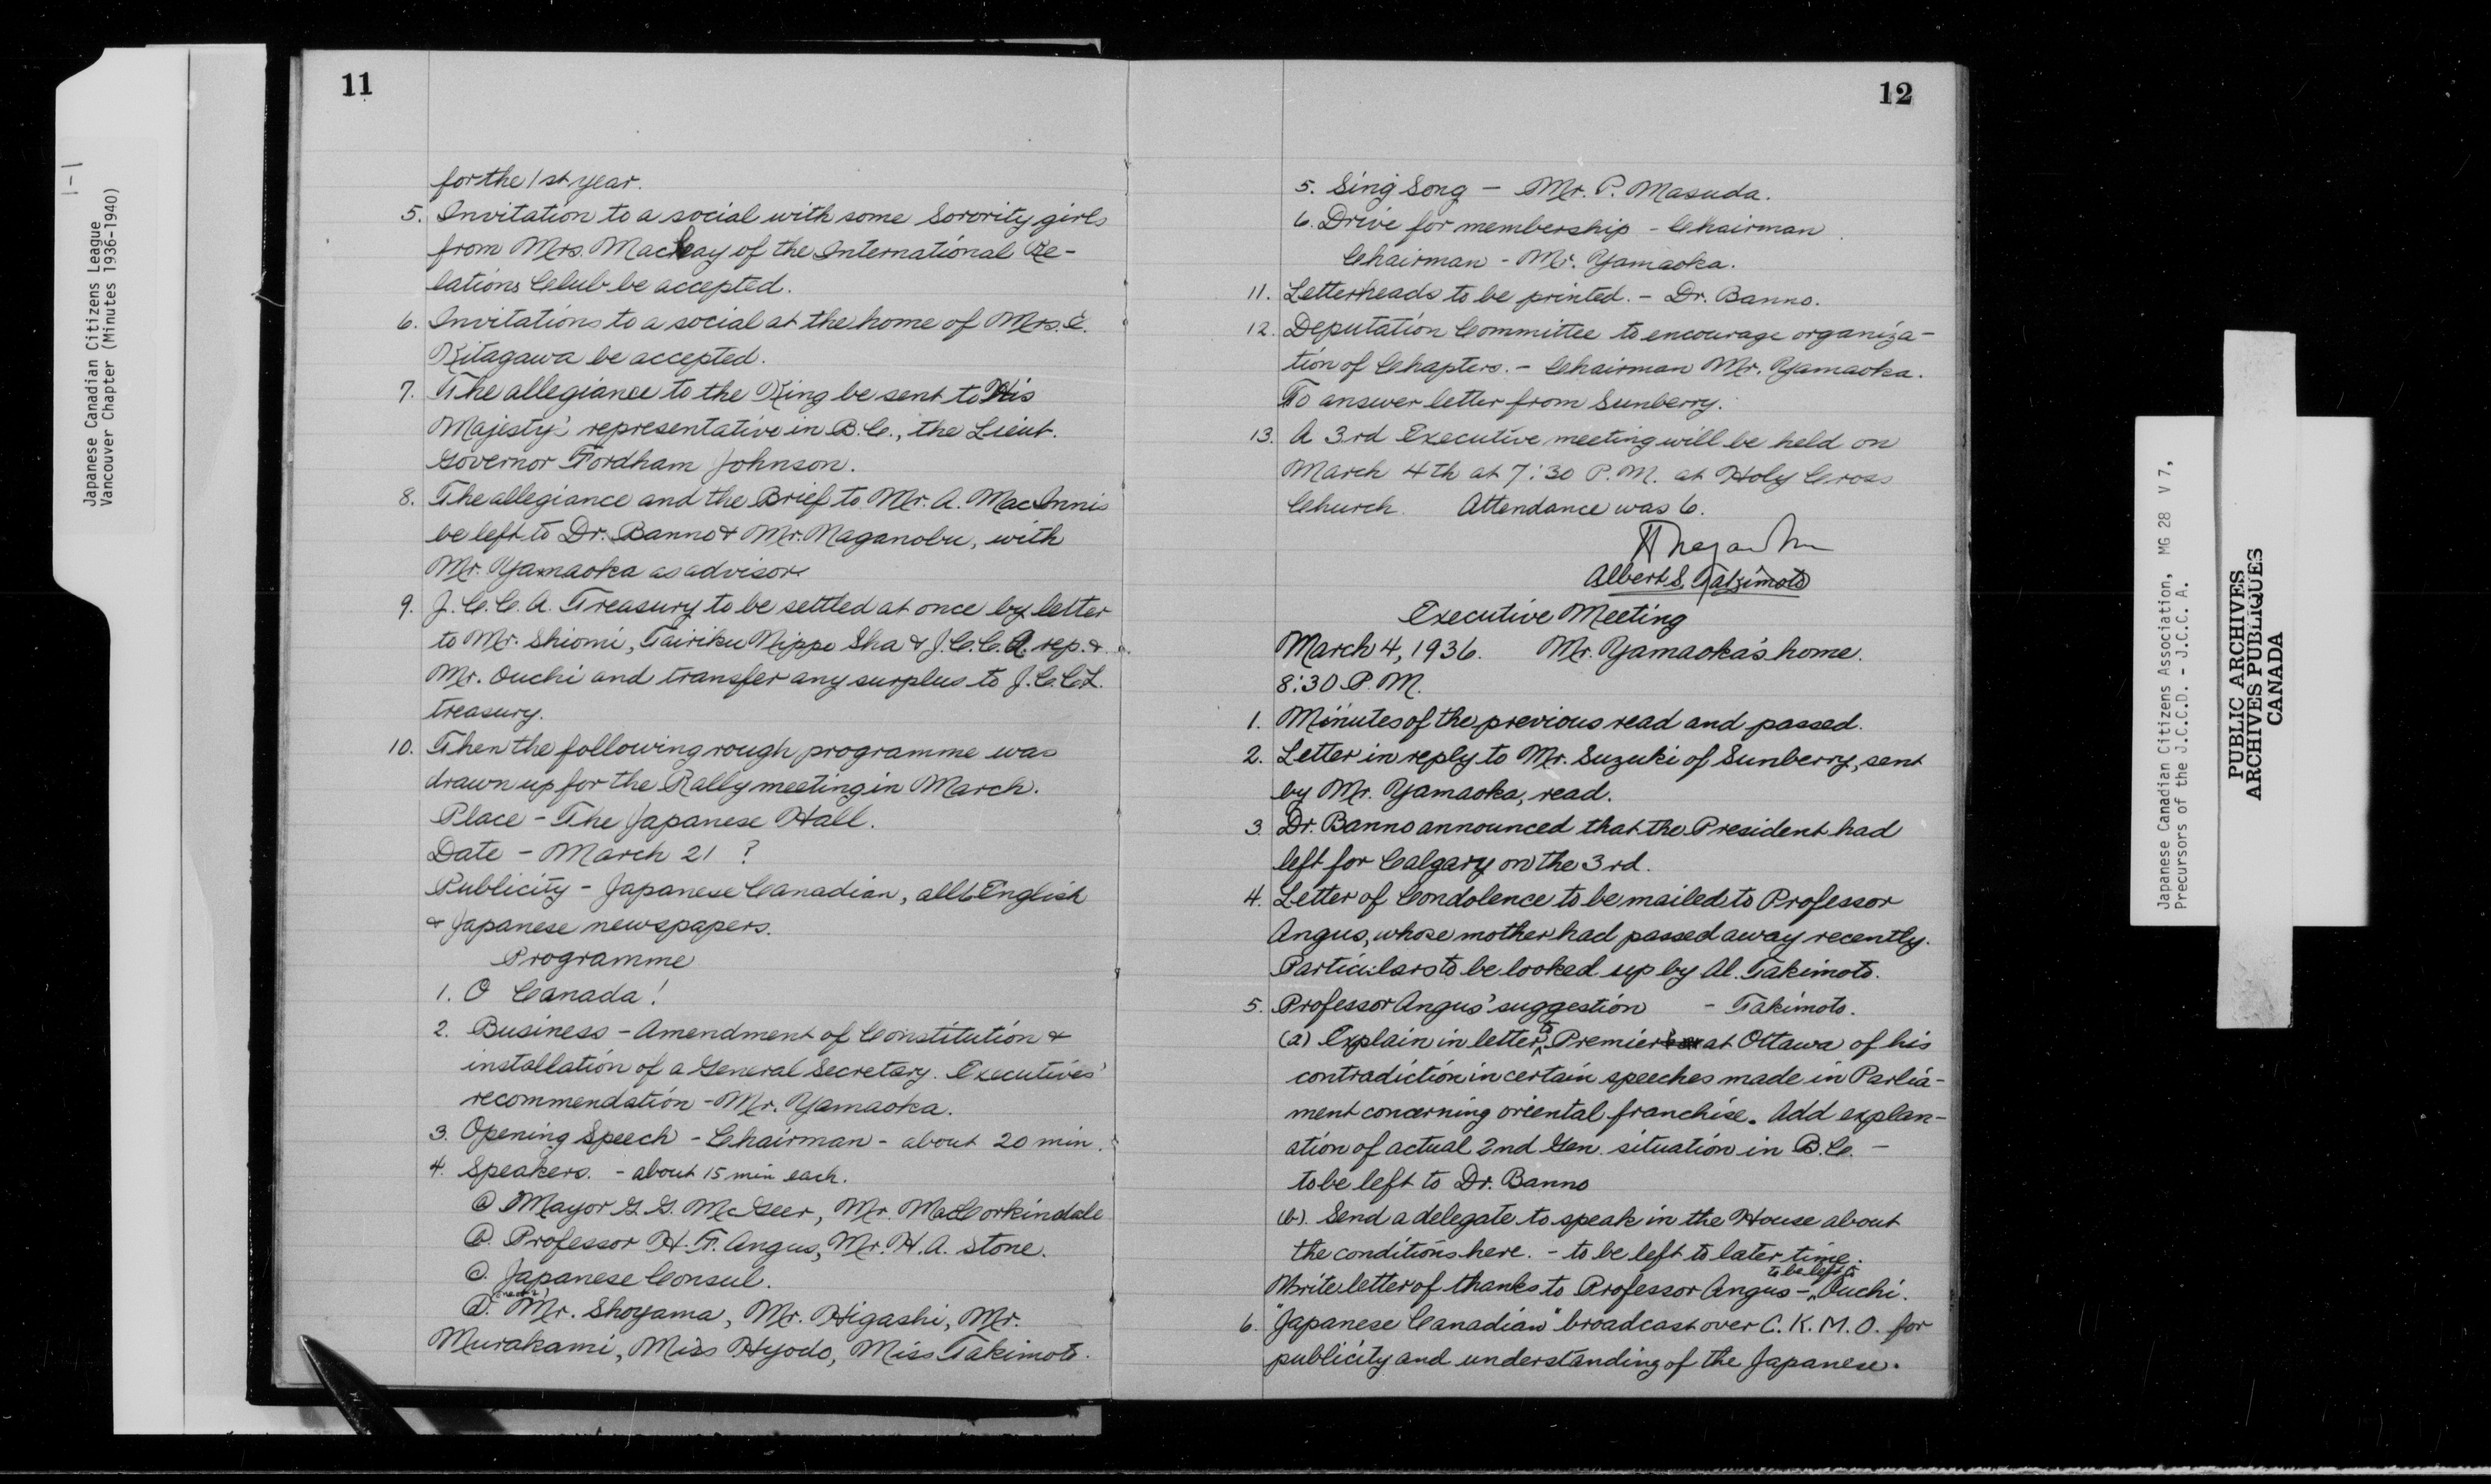 1-1
Japanese Canadian Citizens League
Vancouver Chapter (Minutes 1936-1940)
11
for the 1st year.
5. Invitation to a social with some Sorority girls
from Mrs. Mackay of the International Re-
lations Club be accepted.
6. Invitations to a social at the home of Mrs. E.
Kitagawa be accepted.
7. The allegiance to the King be sent to His
Majesty's representative in B.C., the Lieut.
Governor Fordham Johnson.
8. The allegiance and the Brief to Mr. A. MacInnis
be left to Dr. Banno & Mr. Naganobu, with
Mr. Yamaoka as advisor
9. J.C.C.A. Treasury to be settled at once by letter
to Mr. Shiomi, Tairiku Nippo Sha & J.C.C.A. rep. &
Mr. Ouchi and transfer any surplus to J.C.C.L.
treasury.
10. Then the following rough programme was
drawn up for the Rally meeting in March.
Place - The Japanese Hall.
Date - March 21 ?
Publicity - Japanese Canadian, all 6 English
& Japanese newspapers.
Programme
1. O Canada!
2. Business - Amendment of Constitution &
installation of a General Secretary. Executives'
recommendation - Mr. Yamaoka.
3. Opening Speech - Chairman - about 20 min.
4. Speakers. - about 15 min each.
a Mayor G. G. McGeer, Mr. MacCorkindale
b. Professor H. F. Angus, Mr. H. A. Stone.
c. Japanese Consul.
d. Mr. Shoyama, Mr. Higashi, Mr.
Murakami, Miss Hyodo, Miss Takimoto.
12
5. Sing Song - Mr. P. Masuda.
6. Drive for membership - Chairman
Chairman - Mr. Yamaoka.
11. Letterheads to be printed. - Dr. Banno.
12. Deputation Committee to encourage organiza-
tion of Chapters. - Chairman Mr. Yamaoka.
To answer letter from Sunberry.
13. A 3rd Executive meeting will be held on
March 4th at 7:30 P.M. at Holy Cross
Church. Attendance was 6.
Albert S. Takimoto
Executive Meeting
March 4, 1936. Mr. Yamaoka's home.
8:30 P.M.
1. Minutes of the previous read and passed.
2. Letter in reply to Mr. Suzuki of Sunberry, sent
by Mr. Yamaoka, read.
3. Dr. Banno announced that the President had
left for Calgary on the 3rd.
4. Letter of Condolence to be mailed to Professor
Angus, whose mother had passed away recently.
Particulars to be looked up by Al. Takimoto.
5. Professor Angus' suggestion - Takimoto.
(a) Explain in letter to Premier at Ottawa of his
contradiction in certain speeches made in Parlia-
ment concerning oriental franchise. Add explan-
ation of actual 2nd Gen. situation in B.C. -
to be left to Dr. Banno
(b). Send a delegate to speak in the House about
the conditions here. - to be left to later time.
Write letter of thanks to Professor Angus - to be left to Ouchi.
6. "Japanese Canadian" broadcast over C.K.M.O. for
publicity and understanding of the Japanese.
Japanese Canadian Citizens Association, MG 28 V 7,
Precursors of the J.C.C.D. - J.C.C. A.
PUBLIC ARCHIVES
ARCHIVES PUBLIQUES
CANADA